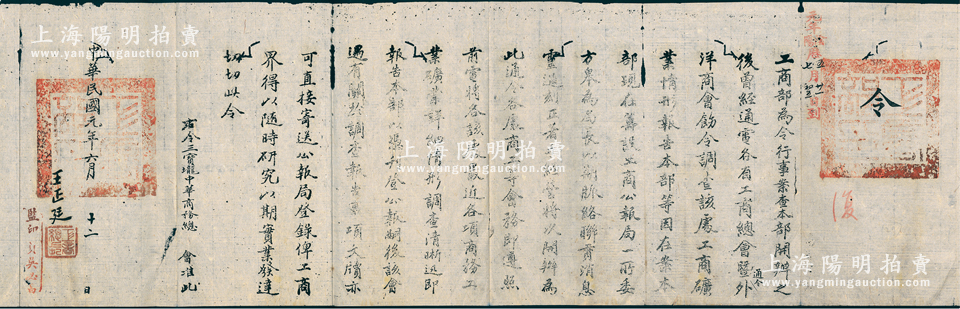 上海陽明拍賣
www.yangmingauction.com
令
工商部為令行事案查本部開辦之
後曾經通電各省工商總會暨外
洋商會飭令調查該處工商礦
業情形報告本部等因在案本
部現在籌設工商公報局一所委
方泉為局長以期脈絡聯貫消息
靈通刻正著手
此通令各處商會務即遵照
前電將各該處最近各項商務工
業礦業詳細情形調查清晰迅即
報告本部以憑刊登公報嗣後該會
遇有關於調查報告等項文牘亦
可直接寄送公報局登錄俾工商
界得以隨時研究以期實業發達
切切此令
右令三寶壟中華商務總會准此
中華民國元年六月 十二 日
王正廷
監印
復